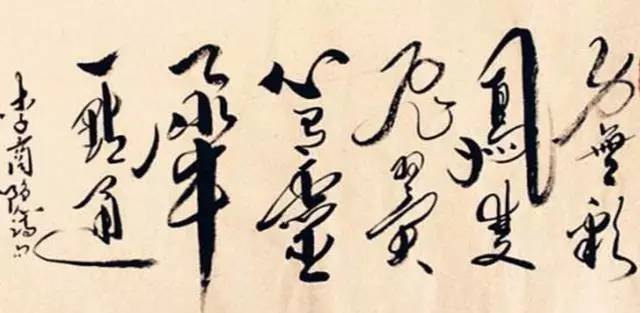 身無彩
鳳雙
飛翼
心有靈
犀
一點通
李商隱詩句